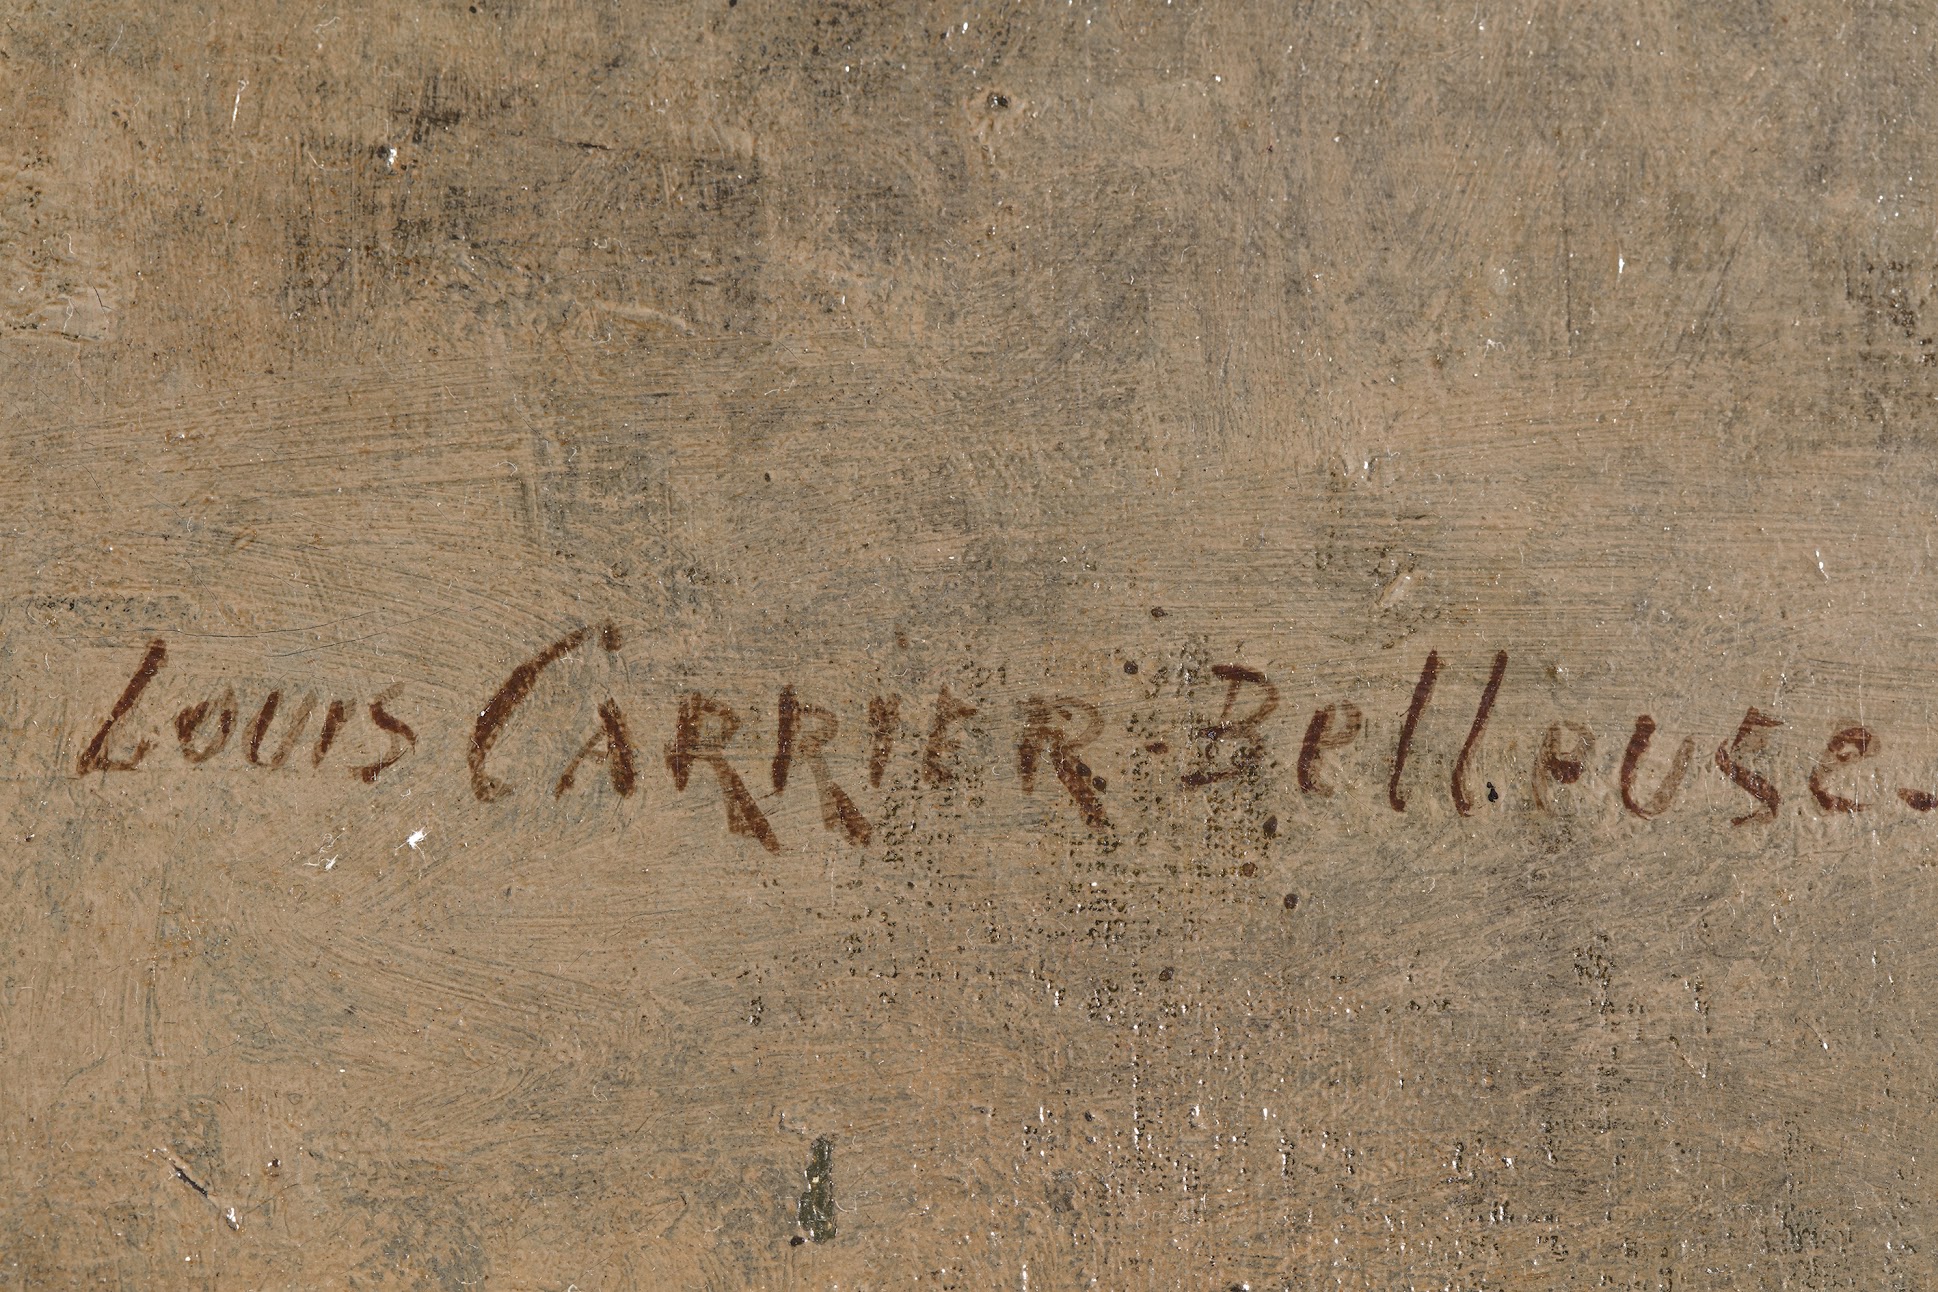 Louis CARRIER-Bellouse-